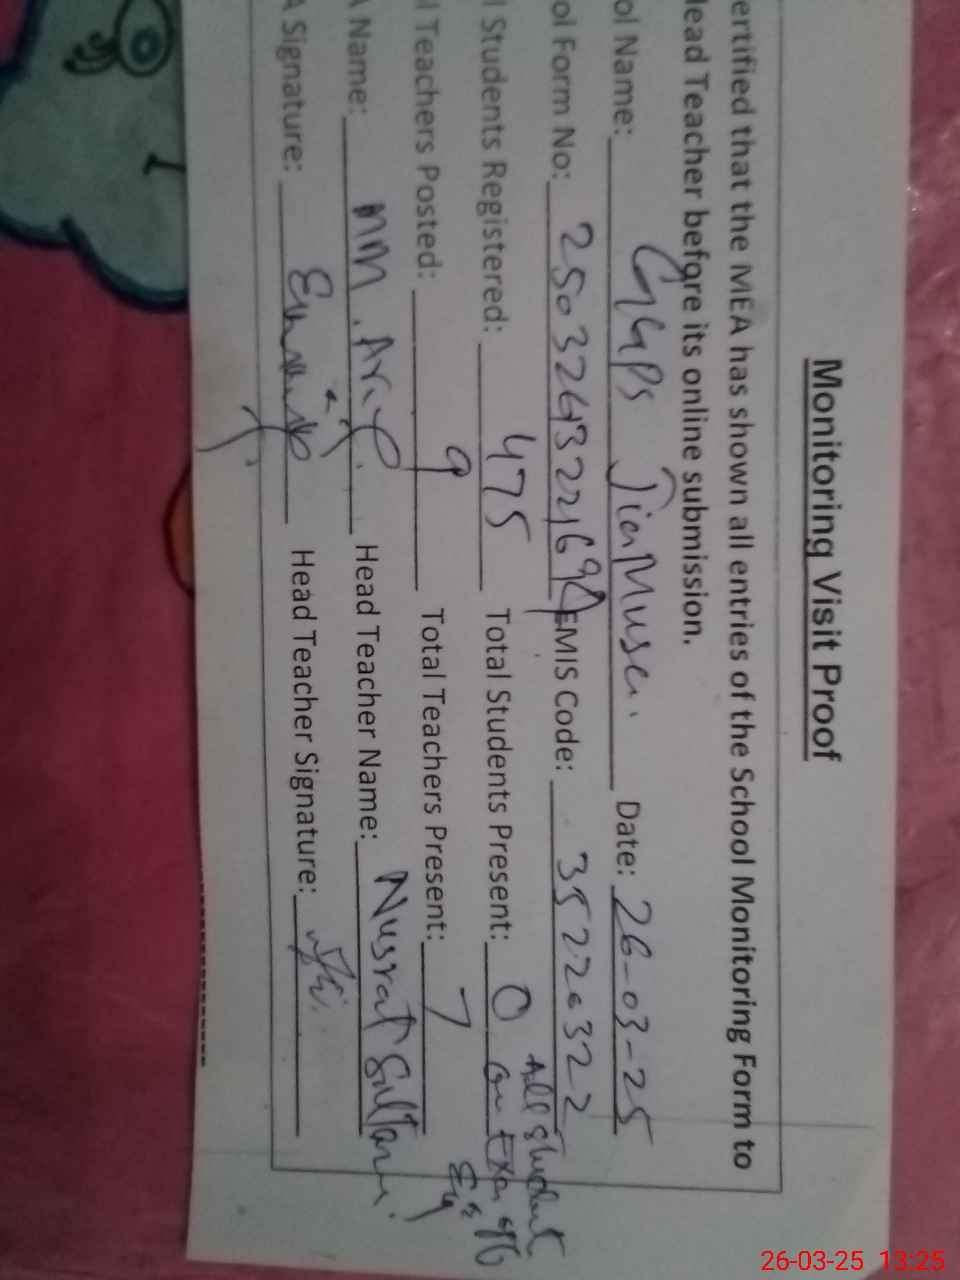 Monitoring Visit Proof
ertified that the MEA has shown all entries of the School Monitoring Form to
lead Teacher before its online submission.
ol Name: GGPS Date: 26-03-25
ol Form No: EMIS Code: 35220322
l Students Registered: 475 Total Students Present: 0 All student on
l Teachers Posted: 9 Total Teachers Present: 7
A Name: MM. Arif. Head Teacher Name: Nusrat Sultana.
A Signature: Head Teacher Signature:
26-03-25 13:25